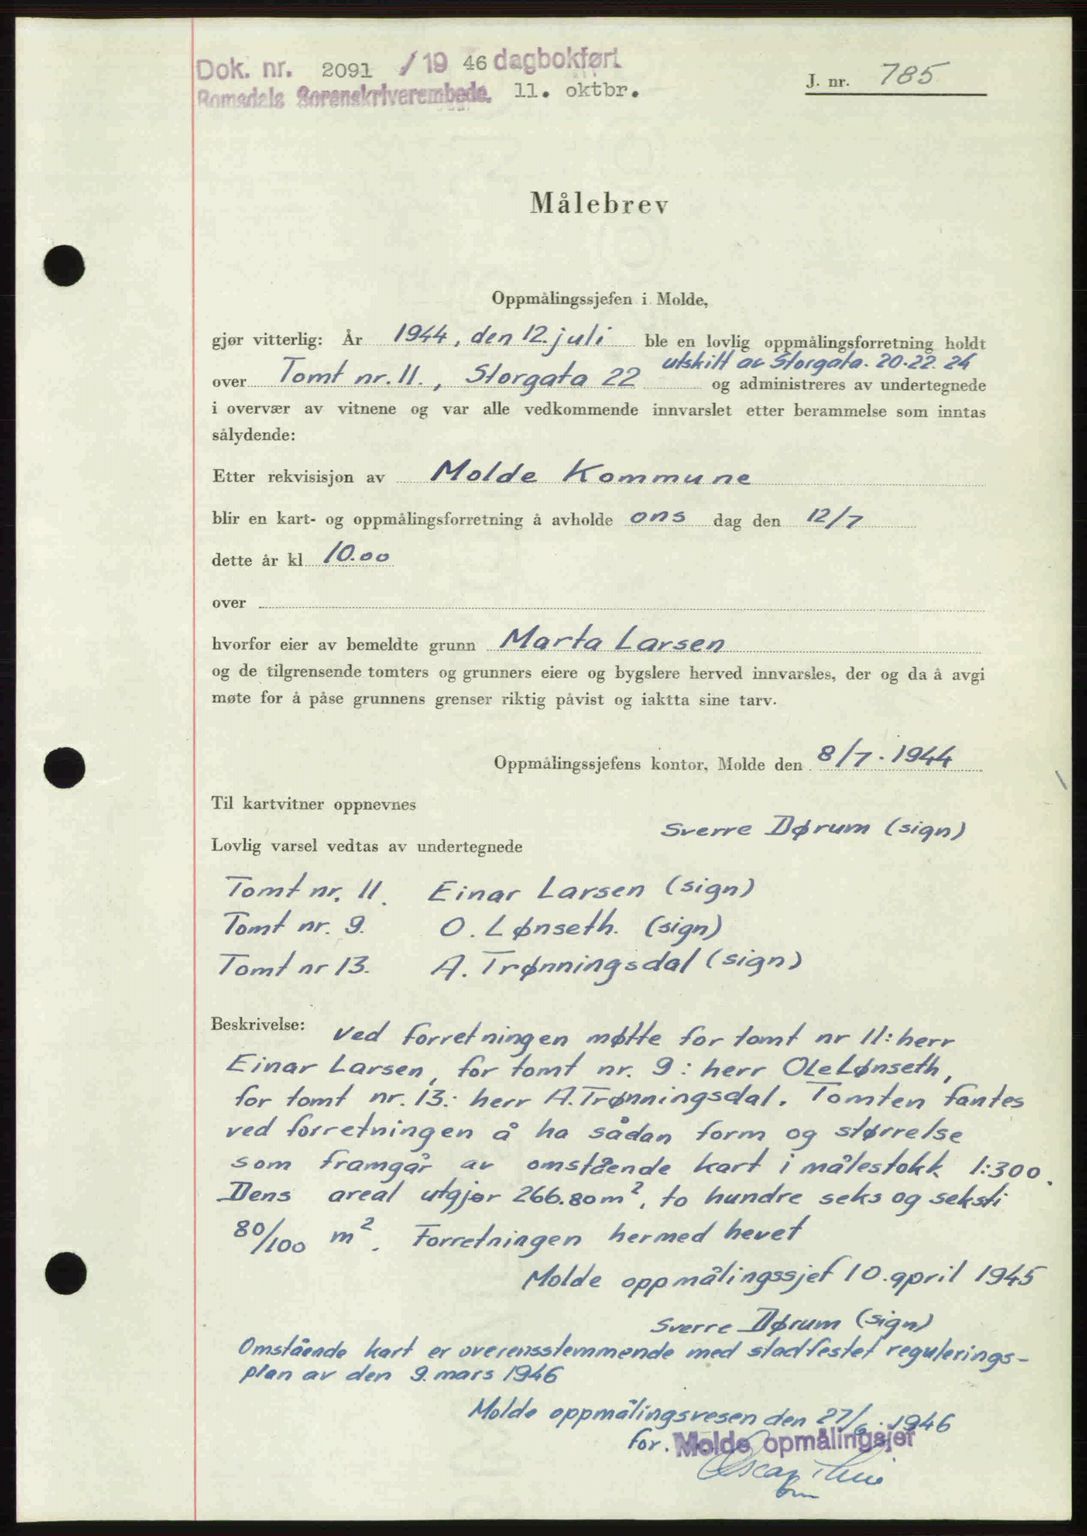 Dok. nr. 2091 /1946 dagbokført
Romsdals Sorenskriverembede. 11. oktbr.
J. nr. 785
Målebrev
Oppmålingssjefen i Molde,
gjør vitterlig: År 1944, den 12. juli ble en lovlig oppmålingsforretning holdt
utskilt av Storgata. 20-22. 24
over Tomt nr. 11., Storgata 22 og administreres av undertegnede
i overvær av vitnene og var alle vedkommende innvarslet etter berammelse som inntas
sålydende:
Etter rekvisisjon av Molde Kommune
blir en kart- og oppmålingsforretning å avholde ons dag den 12/7
dette år kl 10.00
over
hvorfor eier av bemeldte grunn Marta Larsen
og de tilgrensende tomters og grunners eiere og bygslere herved innvarsles, der og da å avgi
møte for å påse grunnens grenser riktig påvist og iaktta sine tarv.
Oppmålingssjefens kontor, Molde den 8/7. 1944
Til kartvitner oppnevnes
Sverre Dørum (sign)
Lovlig varsel vedtas av undertegnede
Tomt nr. 11. Einar Larsen (sign)
Tomt nr. 9. O. Lønseth. (sign)
Tomt nr 13. A. Trønningsdal (sign)
Beskrivelse: Ved forretningen møtte for tomt nr 11: herr
Einar Larsen, for tomt nr. 9: herr Ole Lønseth,
for tomt nr. 13: herr A. Trønningsdal. Tomten fantes
ved forretningen å ha sådan form og størrelse
som framgår av omstående kart i målestokk 1:300.
Dens areal utgjør 266.80 m², to hundre seks og seksti
80/100 m². Forretningen hermed hevet
Molde oppmålingssjef 10. april 1945
Sverre Dørum (sign)
Omstående kart er overensstemmende med stadfestet regulerings-
plan av den 9. mars 1946
Molde oppmålingsvesen den 27/6. 1946
for. Molde opmålingsjef
Oscar